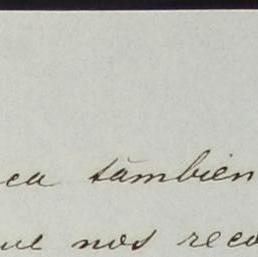 ca tambien
ue nos reco